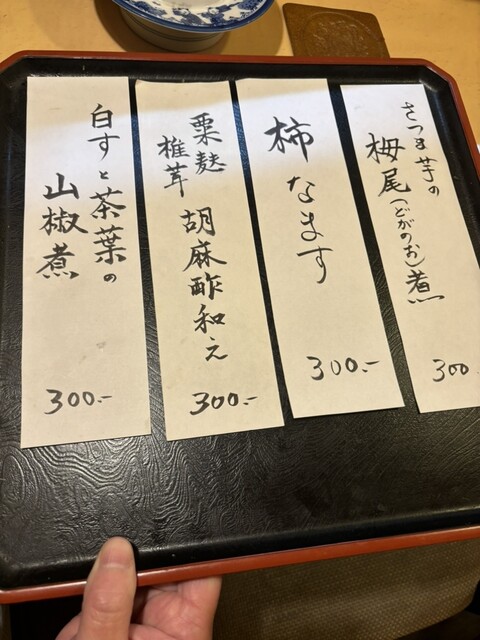 さつま芋の
栂尾(とがのお)煮
300
柿なます
300.-
粟麩
椎茸 胡麻酢和え
300.-
白すと茶葉の
山椒煮
300.-